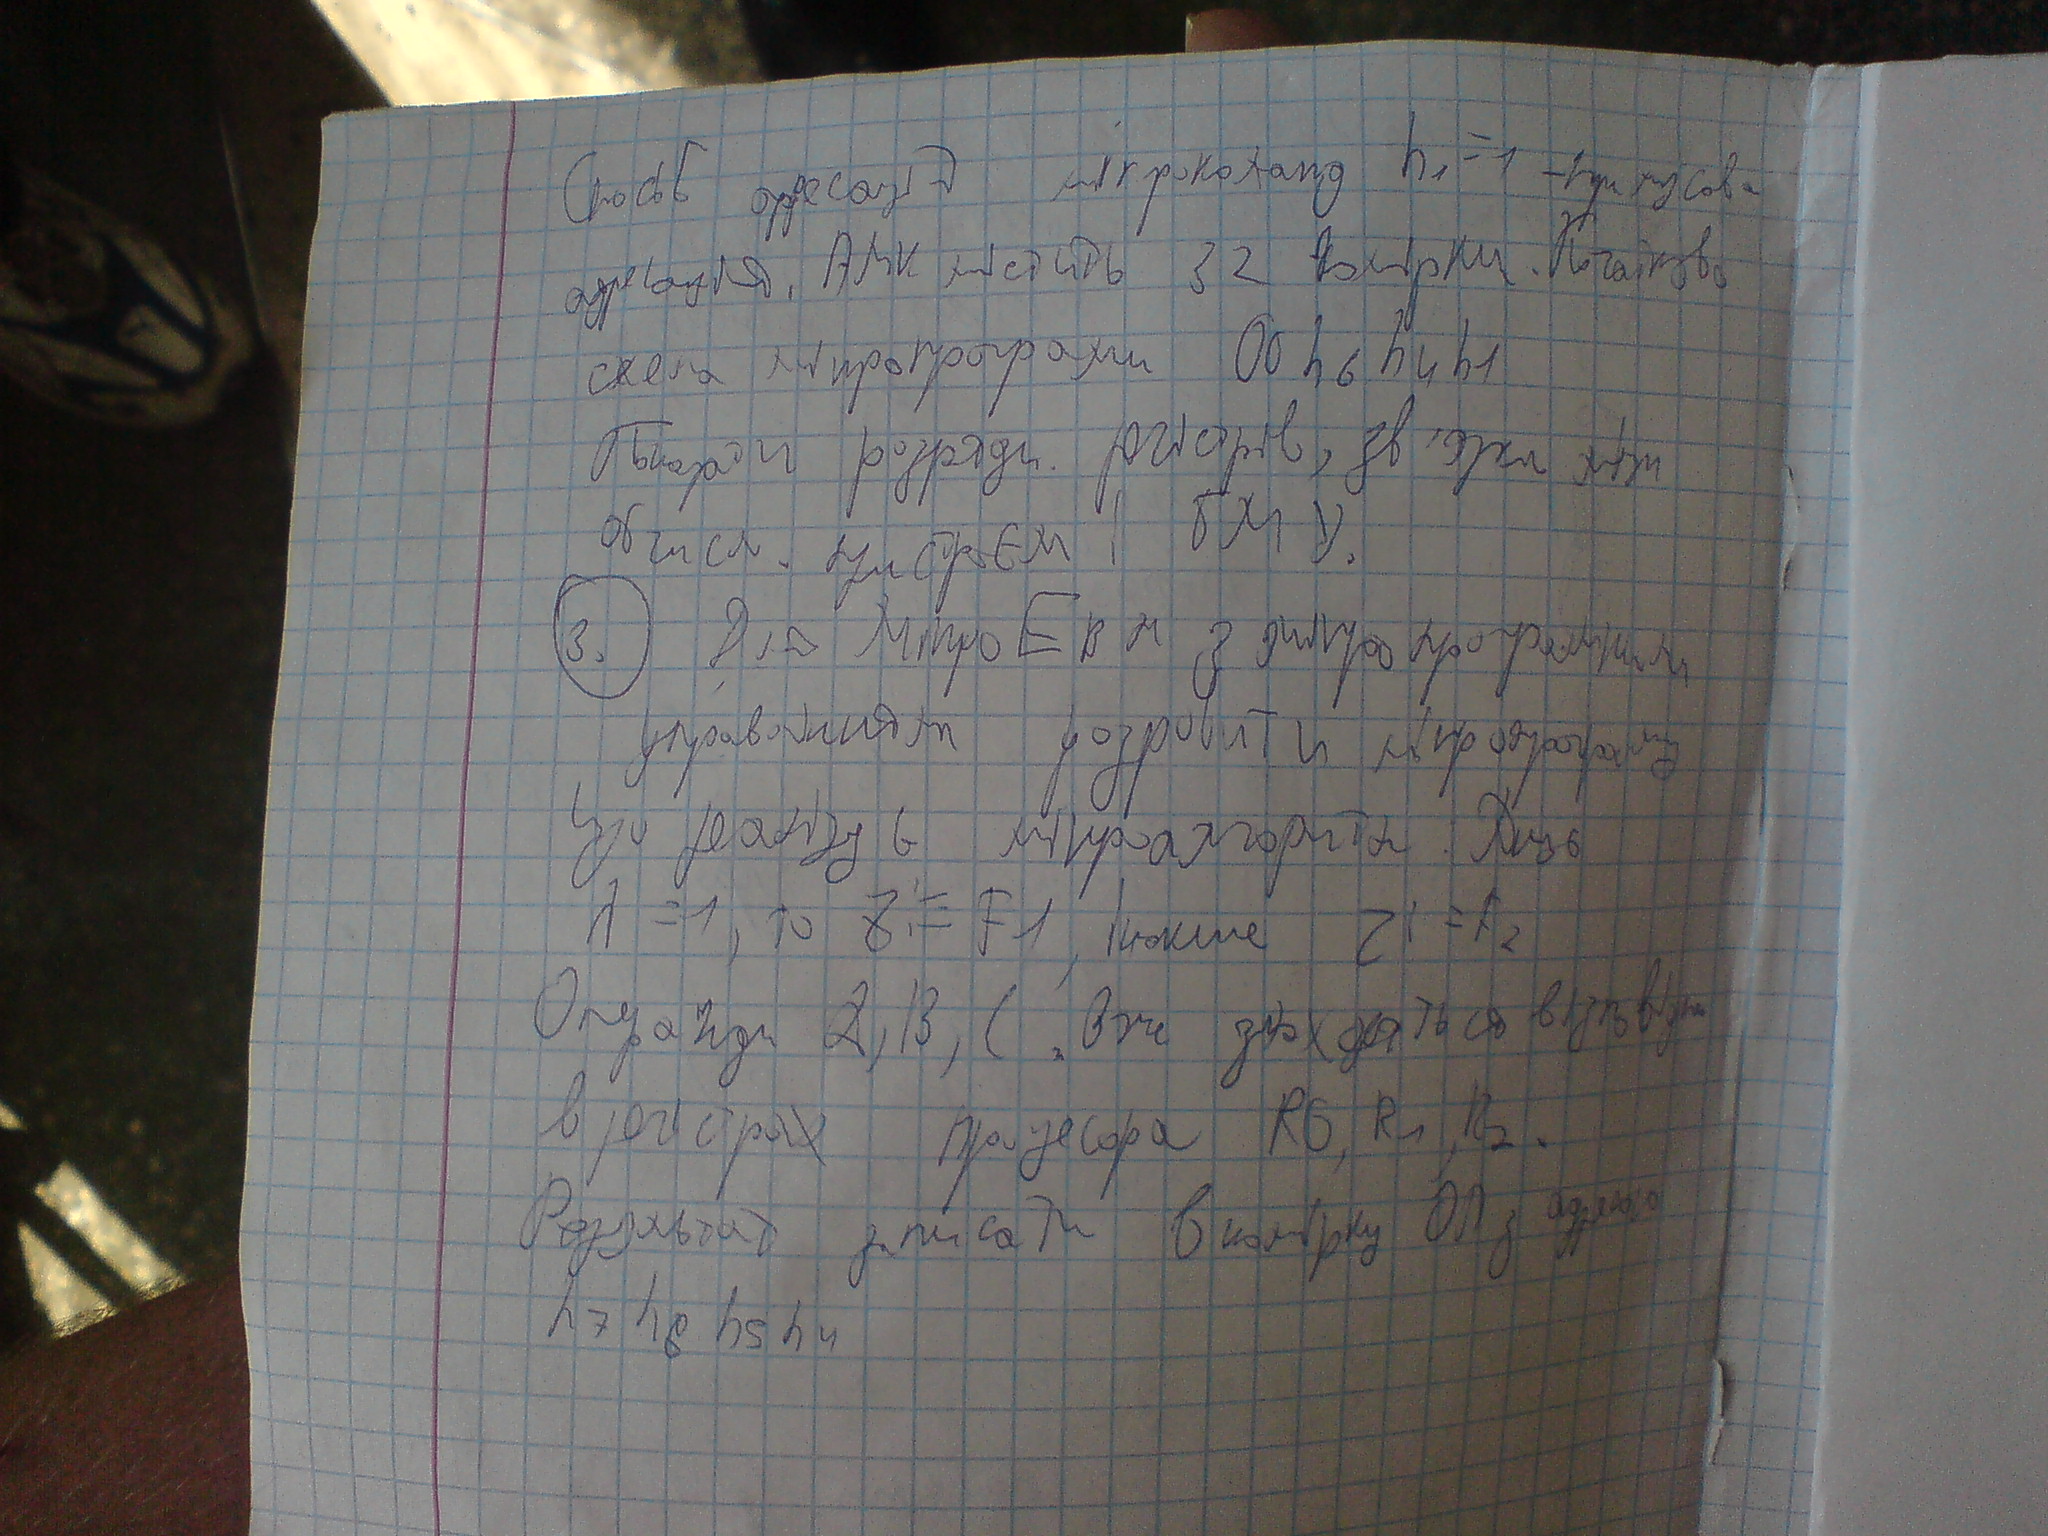 Спосіб адресації мікрокоманд h₁=1 - примусова
адресація. АМК містить 32 комірки. Початкова
схема мікропрограми 00 h₉ h₄ h₁
Показати розряди регістрів, зв'язки між
обчисл. пристроєм і БМУ.
3. Для МікроЕВМ з мікропрограмним
управлінням розробити мікропрограму
що реалізує мікроалгоритм. Якщо
λ=1, то Z:=F1, інакше Z:=F2
Операнди A, B, C. Вже знаходяться відповідно
в регістрах процесора R0, R1, R2.
Результат записати в комірку ОП з адресою